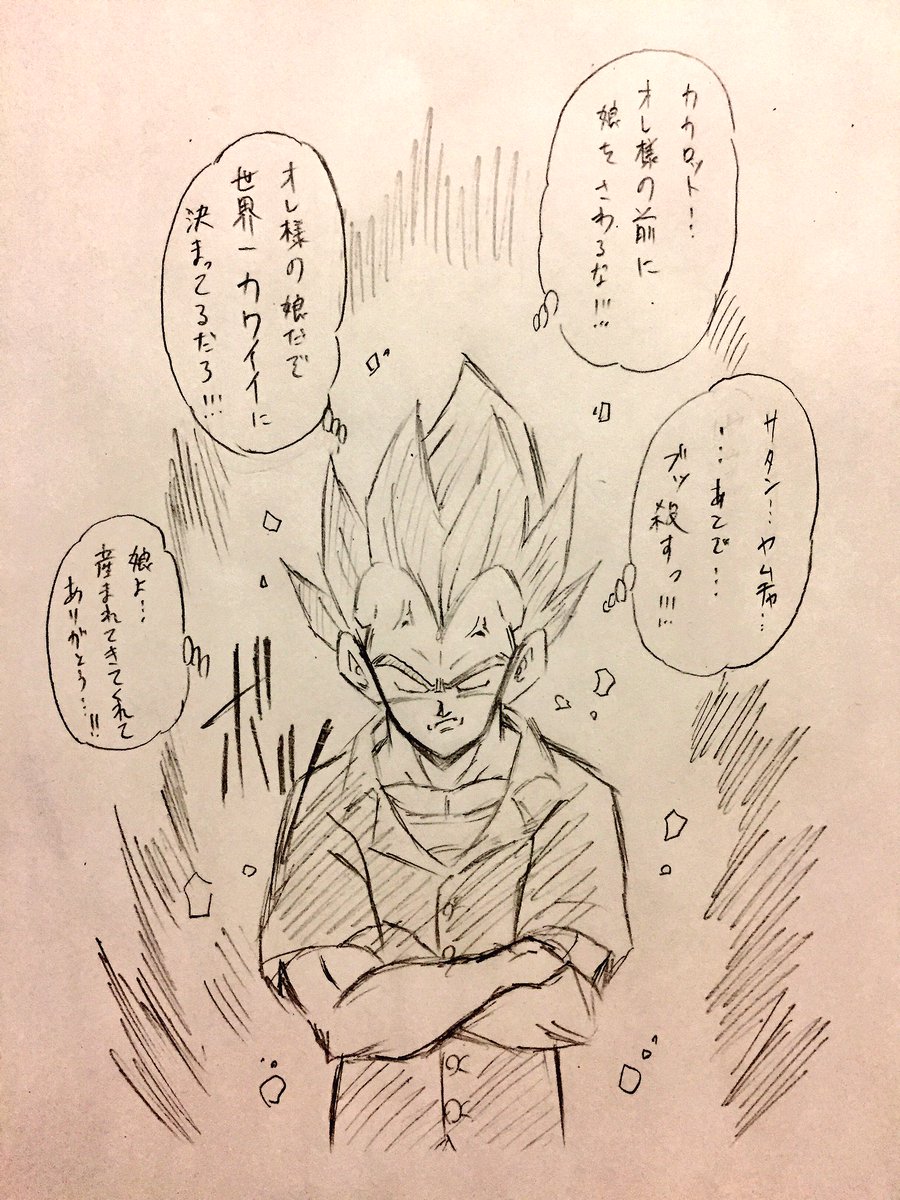 カカロット!!
オレ様の前に
娘をさわるな!!!
サタン…ヤムチャ…
…あとで…
ブッ殺すっ!!!
オレ様の娘だぞ
世界一カワイイに
決まってるだろ!!!
娘よ…
産まれてきてくれて
ありがとう…!!